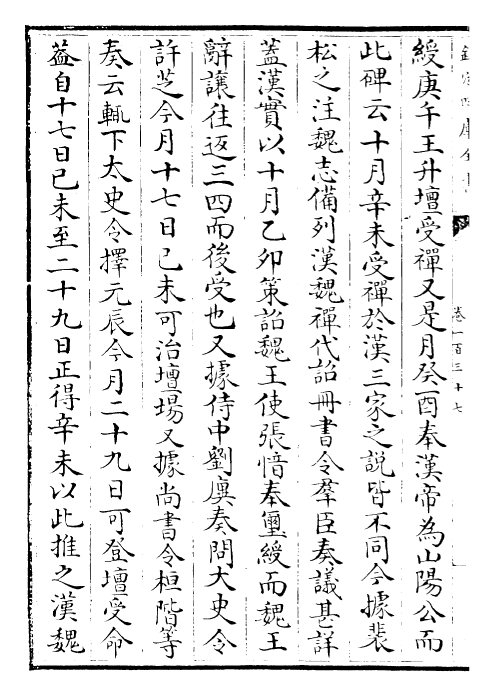 欽定四庫全書
卷一百三十七
綬庚午王升壇受禪又是月癸酉奉漢帝為山陽公而
此碑云十月辛未受禪於漢三家之說皆不同今據裴
松之注魏志備列漢魏禪代詔冊書令羣臣奏議甚詳
蓋漢實以十月乙卯策詔魏王使張愔奉璽綬而魏王
辭讓往返三四而後受也又據侍中劉廙奏問太史令
許芝今月十七日已未可治壇場又據尚書令桓階等
奏云輒下太史令擇元辰今月二十九日可登壇受命
葢自十七日已未至二十九日正得辛未以此推之漢魏